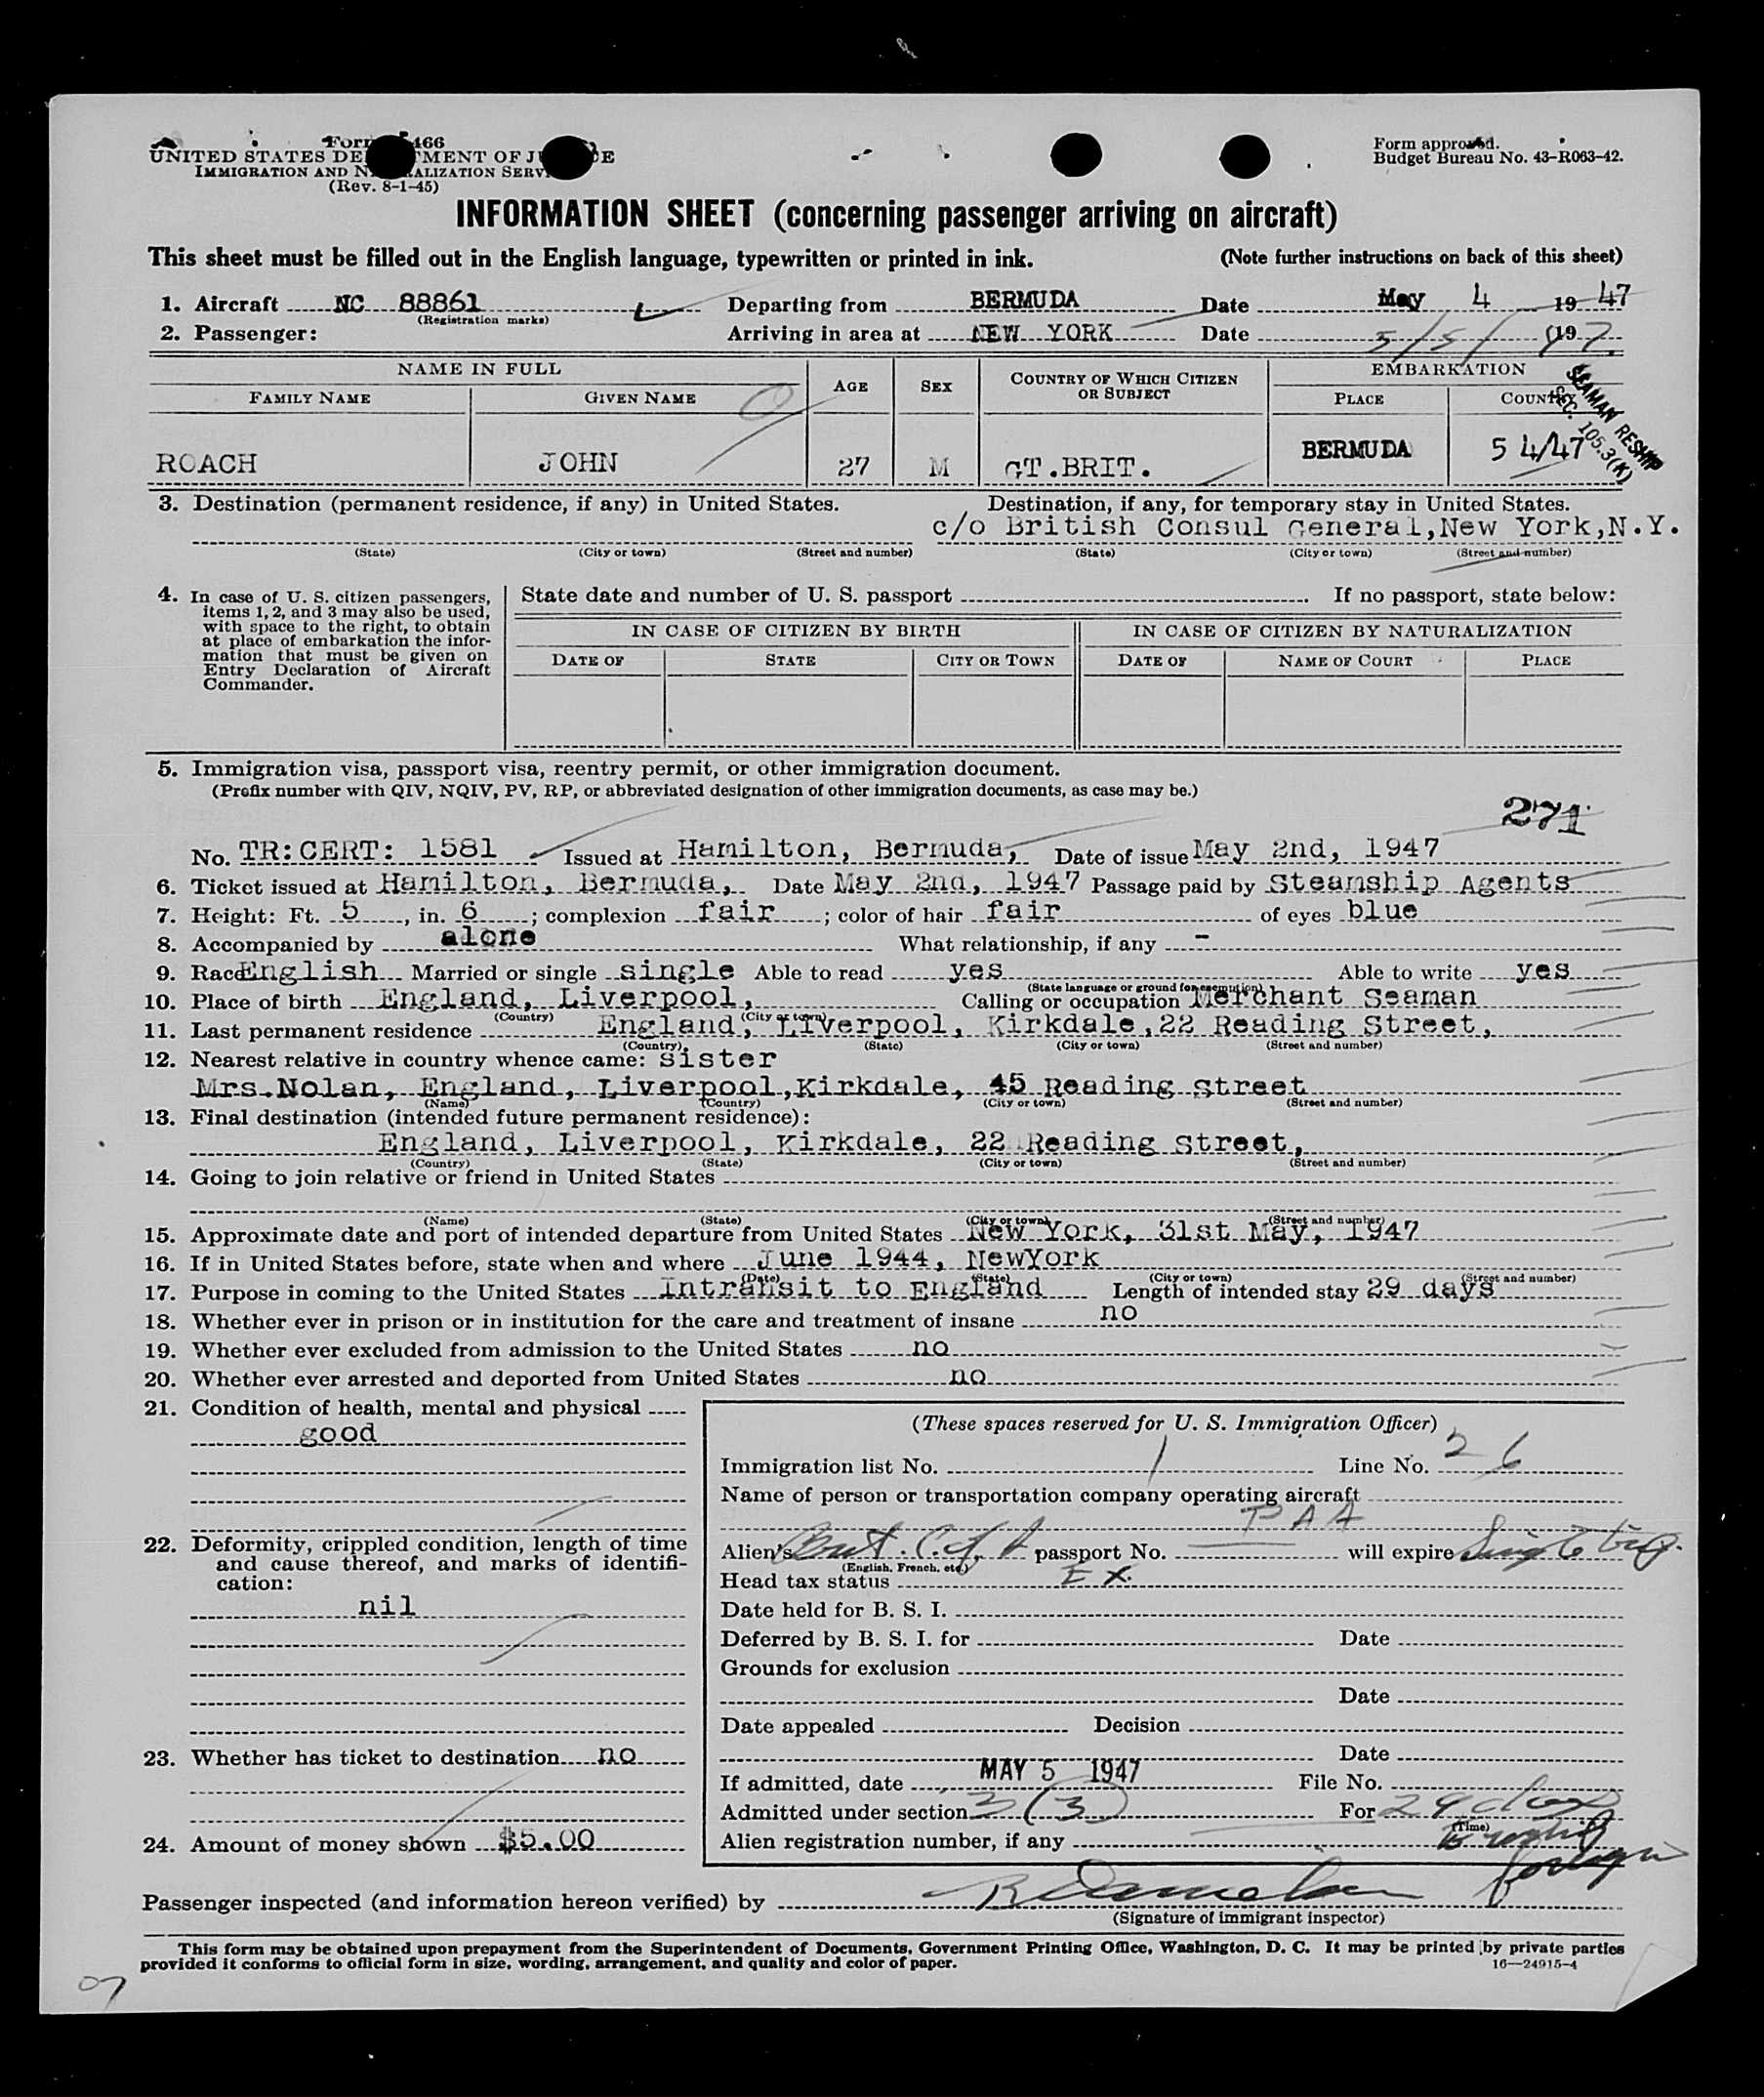 Form 466
UNITED STATES DE MENT OF J E
IMMIGRATION AND N ALIZATION SERV
(Rev. 8-1-45)
Form approved.
Budget Bureau No. 43-R063-42.
INFORMATION SHEET (concerning passenger arriving on aircraft)
This sheet must be filled out in the English language, typewritten or printed in ink. (Note further instructions on back of this sheet)
1. Aircraft NC 88861 Departing from BERMUDA Date May 4 19 47
(Registration marks)
2. Passenger: Arriving in area at NEW YORK Date 5/5/ 1947
NAME IN FULL AGE SEX COUNTRY OF WHICH CITIZEN OR SUBJECT EMBARKATION
FAMILY NAME GIVEN NAME PLACE COUNTRY
SEAMAN RESHIP
SEC. 105.3(K)
ROACH JOHN 27 M GT.BRIT. BERMUDA 5 4/47
3. Destination (permanent residence, if any) in United States. Destination, if any, for temporary stay in United States.
c/o British Consul General,New York,N.Y.
(State) (City or town) (Street and number) (State) (City or town) (Street and number)
4. In case of U. S. citizen passengers, items 1, 2, and 3 may also be used, with space to the right, to obtain at place of embarkation the information that must be given on Entry Declaration of Aircraft Commander.
State date and number of U. S. passport . If no passport, state below:
IN CASE OF CITIZEN BY BIRTH IN CASE OF CITIZEN BY NATURALIZATION
DATE OF STATE CITY OR TOWN DATE OF NAME OF COURT PLACE
5. Immigration visa, passport visa, reentry permit, or other immigration document.
(Prefix number with QIV, NQIV, PV, RP, or abbreviated designation of other immigration documents, as case may be.)
271
No. TR:CERT: 1581 Issued at Hamilton, Bermuda, Date of issue May 2nd, 1947
6. Ticket issued at Hamilton, Bermuda, Date May 2nd, 1947 Passage paid by Steamship Agents
7. Height: Ft. 5, in. 6; complexion fair; color of hair fair of eyes blue
8. Accompanied by alone What relationship, if any -
9. Race English Married or single single Able to read yes Able to write yes
(State language or ground for exemption)
10. Place of birth England, Liverpool, Calling or occupation Merchant Seaman
(Country) (City or town)
11. Last permanent residence England, Liverpool, Kirkdale,22 Reading Street,
(Country) (State) (City or town) (Street and number)
12. Nearest relative in country whence came: sister
Mrs.Nolan, England, Liverpool,Kirkdale, 45 Reading street
(Name) (Country) (City or town) (Street and number)
13. Final destination (intended future permanent residence):
England, Liverpool, Kirkdale, 22 Reading street,
(Country) (State) (City or town) (Street and number)
14. Going to join relative or friend in United States
(Name) (State) (City or town) (Street and number)
15. Approximate date and port of intended departure from United States New York, 31st May, 1947
16. If in United States before, state when and where June 1944, NewYork
(Date) (State) (City or town) (Street and number)
17. Purpose in coming to the United States Intransit to England Length of intended stay 29 days
18. Whether ever in prison or in institution for the care and treatment of insane no
19. Whether ever excluded from admission to the United States no
20. Whether ever arrested and deported from United States no
21. Condition of health, mental and physical
good
22. Deformity, crippled condition, length of time and cause thereof, and marks of identification:
nil
23. Whether has ticket to destination no
24. Amount of money shown $5.00
(These spaces reserved for U. S. Immigration Officer)
Immigration list No. 1 Line No. 26
Name of person or transportation company operating aircraft
PAA
Alien's Brit. C. of I passport No. will expire Single trip.
(English, French, etc.)
Head tax status EX.
Date held for B. S. I.
Deferred by B. S. I. for Date
Grounds for exclusion
Date
Date appealed Decision
Date
If admitted, date MAY 5 1947 File No.
Admitted under section 3(3) For 29 days
(Time)
Alien registration number, if any to reship
foreign
Passenger inspected (and information hereon verified) by
(Signature of immigrant inspector)
This form may be obtained upon prepayment from the Superintendent of Documents, Government Printing Office, Washington, D. C. It may be printed by private parties
provided it conforms to official form in size, wording, arrangement, and quality and color of paper. 16—24915-4
07